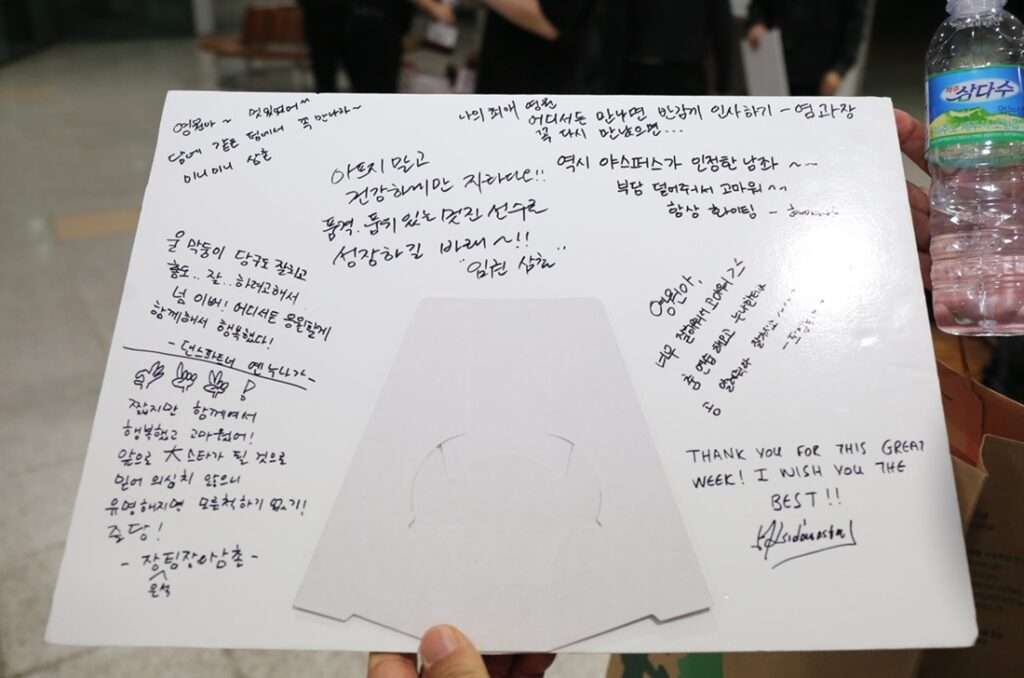 영원아~ 멋있었어~
담에 같은 팀에서 꼭 만나자~
미니미니 삼촌
나의 최애 영원
어디서든 만나면 반갑게 인사하기 - 염과장
꼭 다시 만났으면...
아프지 말고
건강하게만 지하다오!!
품격. 품위 있는 멋진 선수로
성장하길 바래~!!
"임현 삼촌"
역시 야스퍼스가 인정한 남좌~~
부담 덜어줘서 고마워^^
항상 화이팅 -
울 막둥이 당구도 잘치고
춤도.. 잘.. 하려고해서
넘 이뻐! 어디서든 응원할게
함께해서 행복했다!
- 댄스파트너 옌누나가 -
짧지만 함께여서
행복했고 고마웠어!
앞으로 大스타가 될 것으로
믿어 의심치 않으니
유명해지면 모른척하기 없기!
존당!
- 장팀장아삼촌 -
은석
영원아,
너무 잘해줘서 고마워 ㄱㅅ
춤 연습 해라고 누나한테
THANK YOU FOR THIS GREAT
WEEK! I WISH YOU THE
BEST!!
삼다수